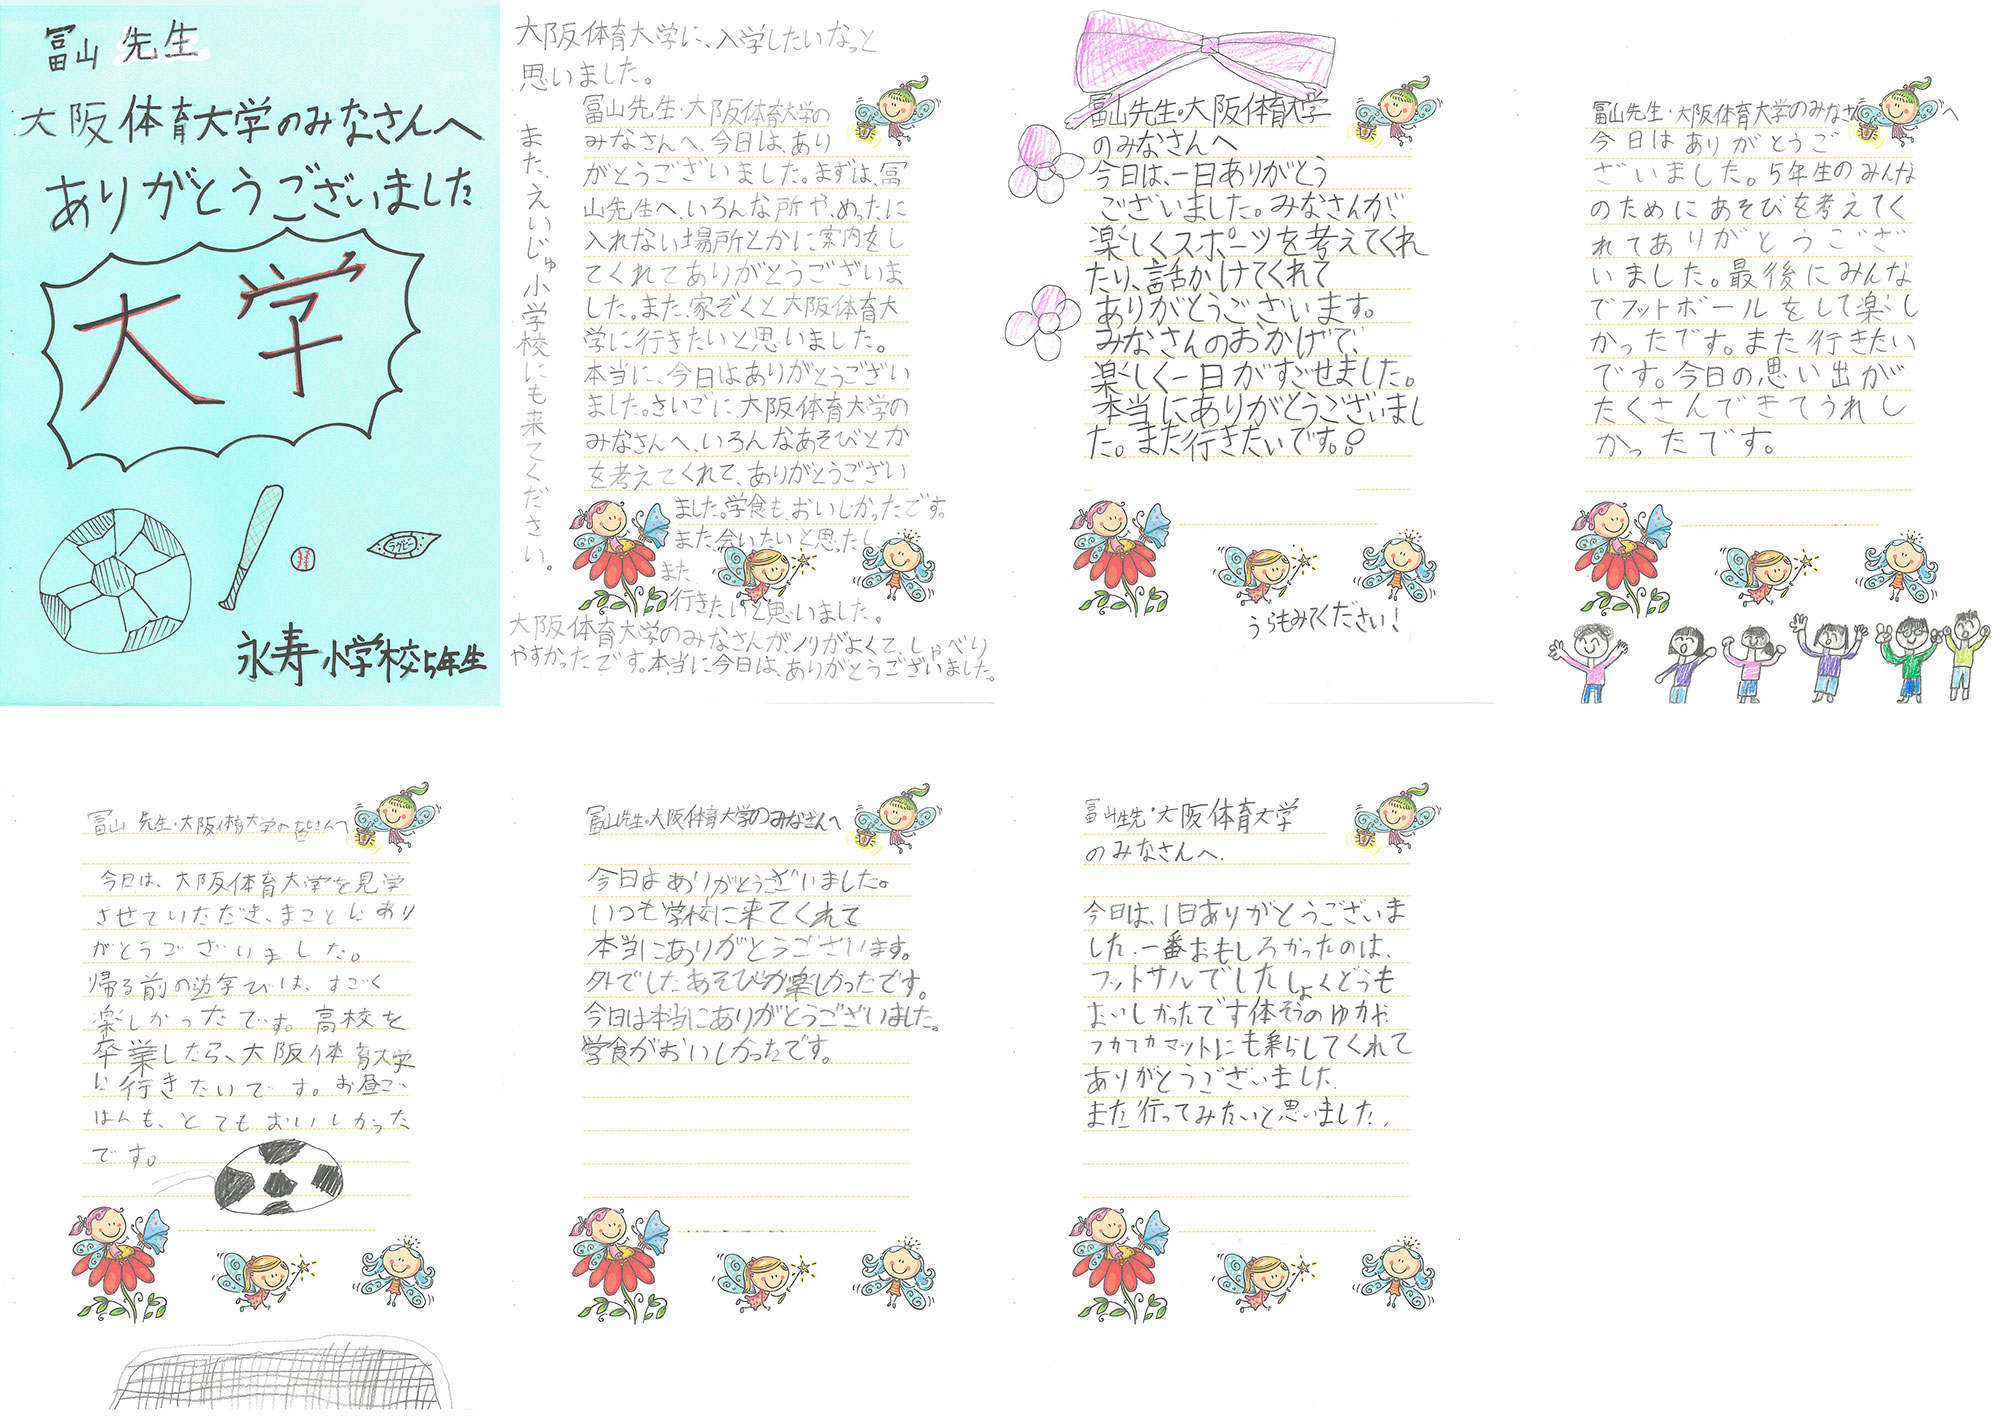 冨山先生
大阪体育大学のみなさんへ
ありがとうございました
大学
ラグビー
永寿小学校5年生
大阪体育大学に、入学したいなっと
思いました。
また、えいじゅ小学校にも来てください。
冨山先生・大阪体育大学の
みなさんへ、今日は、あり
がとうございました。まずは、冨
山先生へ、いろんな所や、めったに
入れない場所とかに案内をし
てくれてありがとうございま
した。また、家ぞくと大阪体育大
学に行きたいと思いました。
本当に、今日はありがとうござい
ました。さいごに、大阪体育大学の
みなさんへ、いろんなあそびとか
を考えてくれて、ありがとうござい
ました。学食も、おいしかったです。
また、会いたいと思たし
また
行きたいと思いました。
大阪体育大学のみなさんが、ノリがよくて、しゃべり
やすかったです。本当に今日は、ありがとうございました。
冨山先生・大阪体育大学
のみなさんへ
今日は、一日ありがとう
ございました。みなさんが、
楽しくスポーツを考えてくれ
たり、話かけてくれて
ありがとうございます。
みなさんのおかげで、
楽しく一日がすごせました。
本当にありがとうございまし
た。また行きたいです。
うらもみてください!
冨山先生・大阪体育大学のみなさんへ
今日はありがとうご
ざいました。5年生のみんな
のためにあそびを考えてく
れてありがとうござ
いました。最後にみんな
でフットボールをして楽し
かったです。また行きたい
です。今日の思い出が
たくさんできてうれし
かったです。
冨山 先生・大阪体育大学の皆さんへ
今日は、大阪体育大学を見学
させていただき、まことにあり
がとうございました。
帰る前の遊びは、すごく
楽しかったです。高校を
卒業したら、大阪体育大学
に行きたいです。お昼ご
はんも、とてもおいしかった
です。
冨山先生・大阪体育大学のみなさんへ
今日はありがとうございました。
いつも学校に来てくれて
本当にありがとうございます。
外でしたあそびが楽しかったです。
今日は本当にありがとうございました。
学食がおいしかったです。
冨山生先・大阪体育大学
のみなさんへ.
今日は、1日ありがとうございま
した.一番おもしろかったのは、
フットサルでしたしょくどうも
おいしかったです体そうのゆかや
フカフカマットにも来らしてくれて
ありがとうございました.
また行ってみたいと思いました.